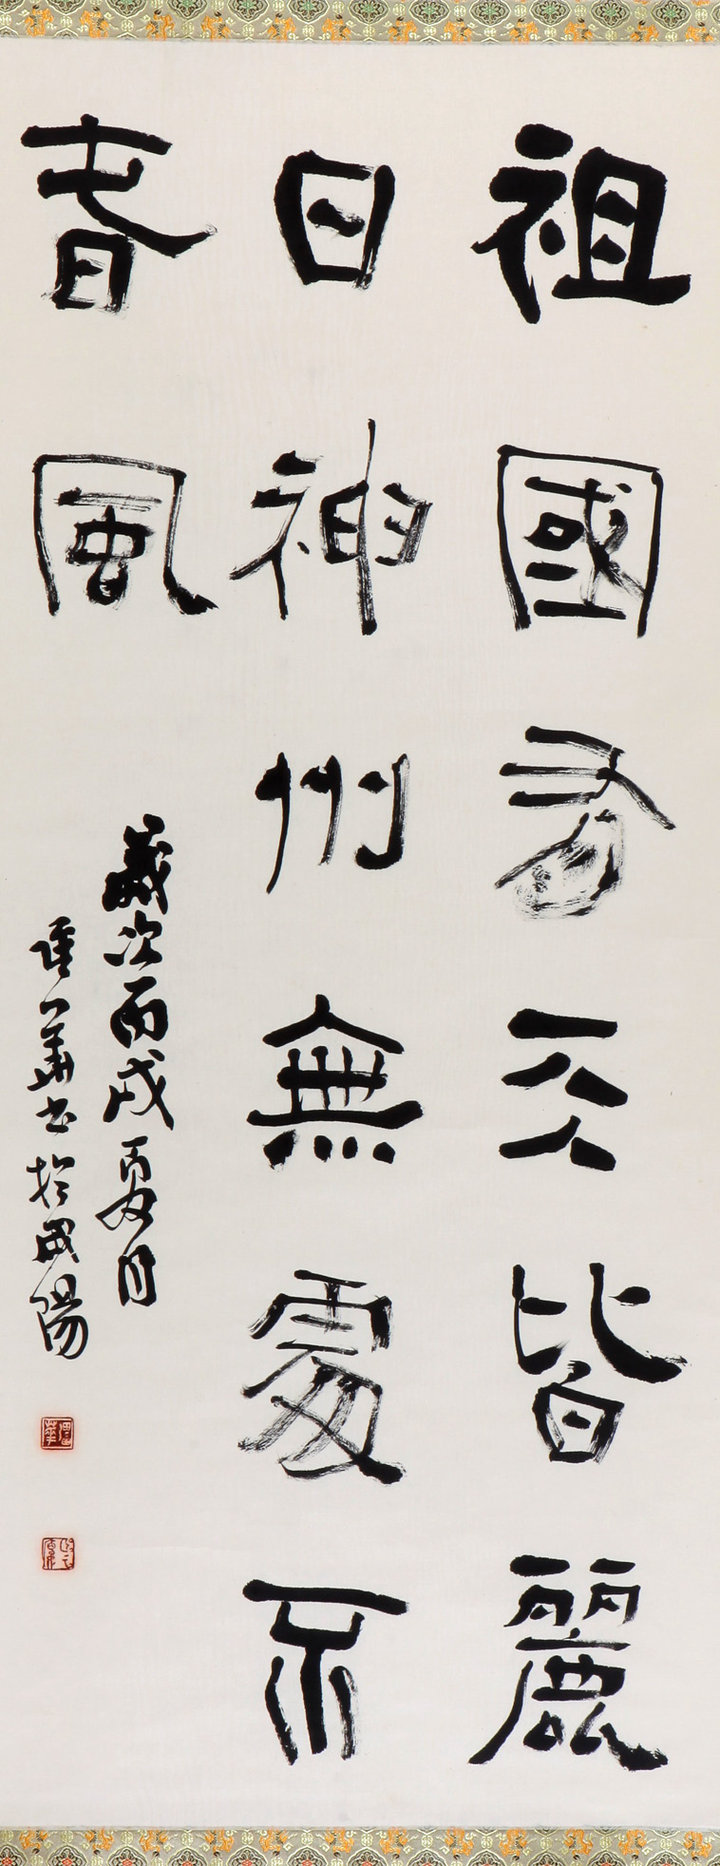 祖國有天皆麗
日神州無處不
春風
歲次丙戌夏月
書於咸陽